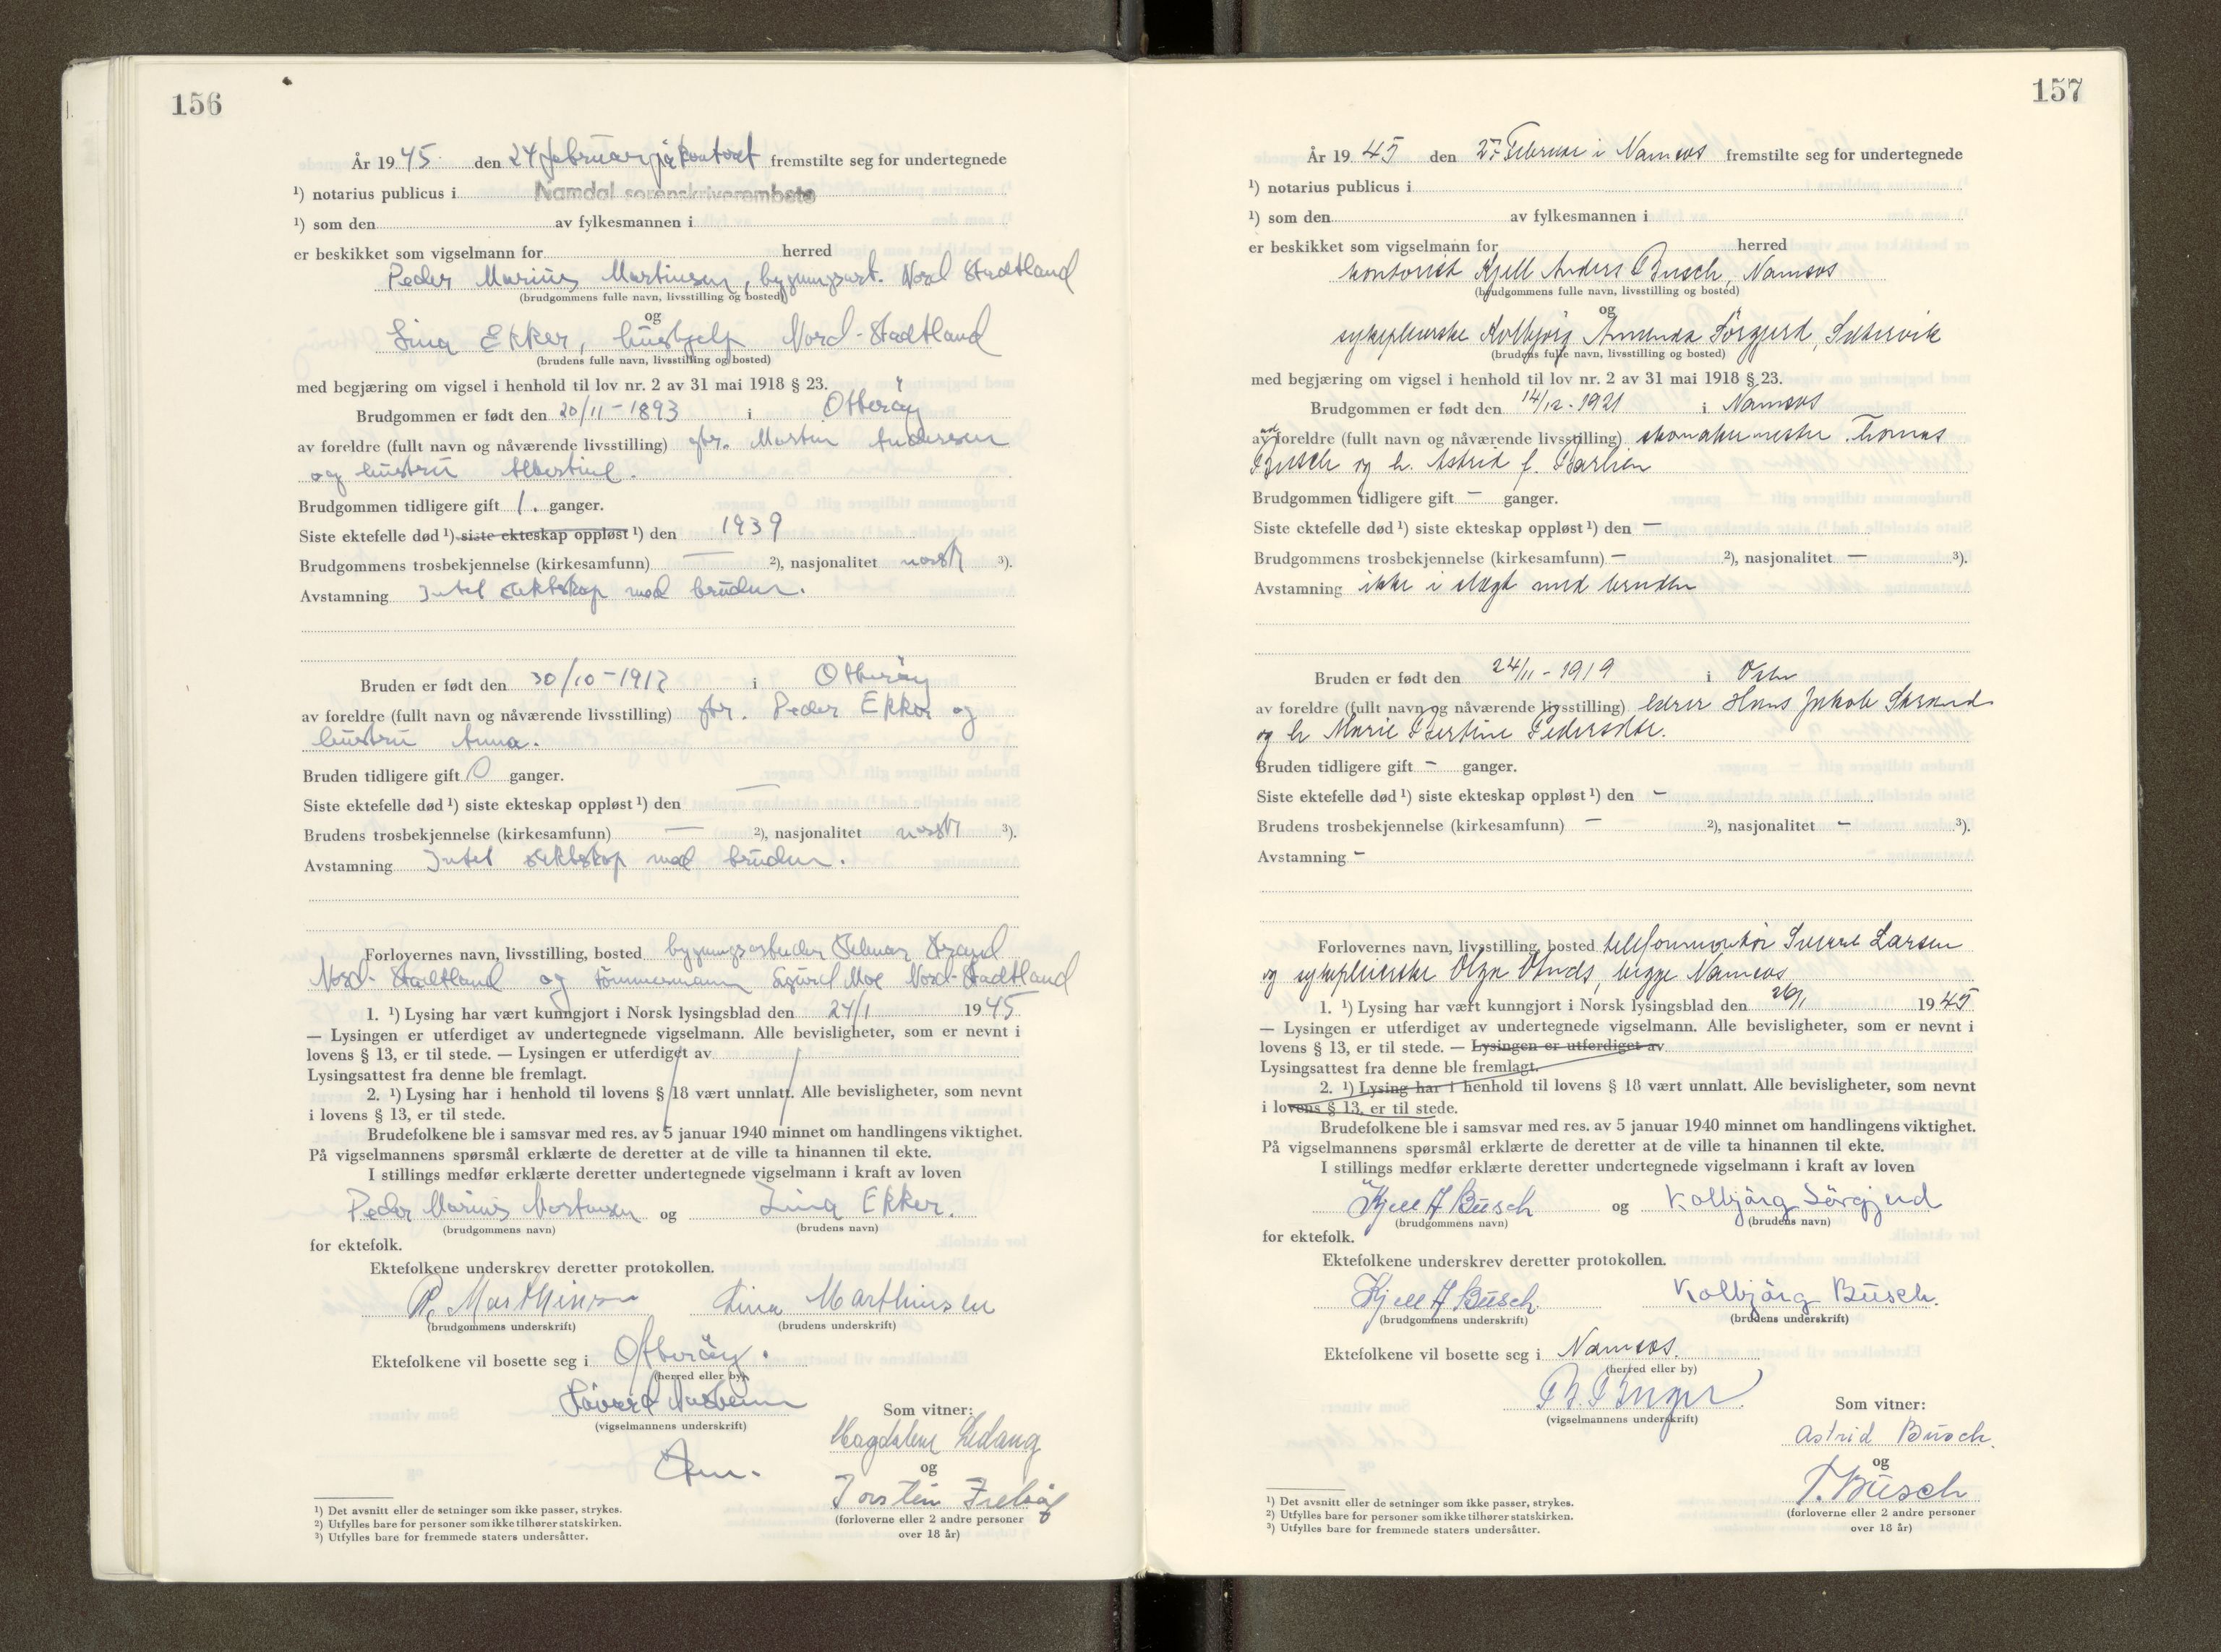 156
År 1945 den 24 februar på kontoret fremstilte seg for undertegnede
¹) notarius publicus i Namdal sorenskriverembete
¹) som den av fylkesmannen i
er beskikket som vigselmann for herred
Peder Marius Martinsen, bygningsarb. Nord Stadtland
(brudgommens fulle navn, livsstilling og bosted)
og
Lina Ekker, hushjelp Nord-Stadtland
(brudens fulle navn, livsstilling og bosted)
med begjæring om vigsel i henhold til lov nr. 2 av 31 mai 1918 § 23.
Brudgommen er født den 20/11-1893 i Otterøy
av foreldre (fullt navn og nåværende livsstilling) gbr. Martin Andersen
og hustru Albertine.
Brudgommen tidligere gift 1. ganger.
Siste ektefelle død ¹) siste ekteskap oppløst ¹) den 1939
Brudgommens trosbekjennelse (kirkesamfunn) — ²), nasjonalitet norsk ³).
Avstamning Intet slektskap med bruden.
Bruden er født den 30/10-1912 i Otterøy
av foreldre (fullt navn og nåværende livsstilling) gbr. Peder Ekker og
hustru Anna.
Bruden tidligere gift 0 ganger.
Siste ektefelle død ¹) siste ekteskap oppløst ¹) den —
Brudens trosbekjennelse (kirkesamfunn) — ²), nasjonalitet norsk ³).
Avstamning Intet slektskap med bruden.
Forlovernes navn, livsstilling, bosted bygningsarbeider Strand
Nord-Stadtland og tømmermann Sigurd Moe Nord-Stadtland
1. ¹) Lysing har vært kunngjort i Norsk lysingsblad den 24/1 1945
— Lysingen er utferdiget av undertegnede vigselmann. Alle bevisligheter, som er nevnt i
lovens § 13, er til stede. — Lysingen er utferdiget av
Lysingsattest fra denne ble fremlagt.
2. ¹) Lysing har i henhold til lovens § 18 vært unnlatt. Alle bevisligheter, som nevnt
i lovens § 13, er til stede.
Brudefolkene ble i samsvar med res. av 5 januar 1940 minnet om handlingens viktighet.
På vigselmannens spørsmål erklærte de deretter at de ville ta hinannen til ekte.
I stillings medfør erklærte deretter undertegnede vigselmann i kraft av loven
Peder Marius Martinsen og Lina Ekker.
(brudgommens navn) (brudens navn)
for ektefolk.
Ektefolkene underskrev deretter protokollen.
P. Marthinsen Lina Marthinsen
(brudgommens underskrift) (brudens underskrift)
Ektefolkene vil bosette seg i Otterøy.
(herred eller by)
(vigselmannens underskrift)
Som vitner:
Magdalene Ledang
og
Torstein
(forloverne eller 2 andre personer
over 18 år)
¹) Det avsnitt eller de setninger som ikke passer, strykes.
²) Utfylles bare for personer som ikke tilhører statskirken.
³) Utfylles bare for fremmede staters undersåtter.
157
År 1945 den 27. Februar i Namsos fremstilte seg for undertegnede
¹) notarius publicus i
¹) som den av fylkesmannen i
er beskikket som vigselmann for herred
kontorist Kjell Anders Busch, Namsos
(brudgommens fulle navn, livsstilling og bosted)
og
sykepleierske Kolbjørg Amanda Sørgjerd, Setervik
(brudens fulle navn, livsstilling og bosted)
med begjæring om vigsel i henhold til lov nr. 2 av 31 mai 1918 § 23.
Brudgommen er født den 14/12-1921 i Namsos
av foreldre (fullt navn og nåværende livsstilling) skomakermester Thomas
Busch og h. Astrid f. Barlien
Brudgommen tidligere gift — ganger.
Siste ektefelle død ¹) siste ekteskap oppløst ¹) den —
Brudgommens trosbekjennelse (kirkesamfunn) — ²), nasjonalitet — ³).
Avstamning ikke i slegt med bruden
Bruden er født den 24/11-1919 i Osen
av foreldre (fullt navn og nåværende livsstilling) lærer Hans Jakob Strand
og h Marie Bertine Pedersdtr.
Bruden tidligere gift - ganger.
Siste ektefelle død ¹) siste ekteskap oppløst ¹) den -
Brudens trosbekjennelse (kirkesamfunn) — ²), nasjonalitet - ³).
Avstamning -
Forlovernes navn, livsstilling, bosted telefonmontør Sverre Larsen
og sykepleierske Olga begge Namsos
1. ¹) Lysing har vært kunngjort i Norsk lysingsblad den 26/1 1945
— Lysingen er utferdiget av undertegnede vigselmann. Alle bevisligheter, som er nevnt i
lovens § 13, er til stede. — Lysingen er utferdiget av
Lysingsattest fra denne ble fremlagt.
2. ¹) Lysing har i henhold til lovens § 18 vært unnlatt. Alle bevisligheter, som nevnt
i lovens § 13, er til stede.
Brudefolkene ble i samsvar med res. av 5 januar 1940 minnet om handlingens viktighet.
På vigselmannens spørsmål erklærte de deretter at de ville ta hinannen til ekte.
I stillings medfør erklærte deretter undertegnede vigselmann i kraft av loven
Kjell A Busch og Kolbjörg Sörgjerd
(brudgommens navn) (brudens navn)
for ektefolk.
Ektefolkene underskrev deretter protokollen.
Kjell A Busch. Kolbjörg Busch.
(brudgommens underskrift) (brudens underskrift)
Ektefolkene vil bosette seg i Namsos.
(herred eller by)
(vigselmannens underskrift)
Som vitner:
Astrid Busch.
og
T. Busch
(forloverne eller 2 andre personer
over 18 år)
¹) Det avsnitt eller de setninger som ikke passer, strykes.
²) Utfylles bare for personer som ikke tilhører statskirken.
³) Utfylles bare for fremmede staters undersåtter.